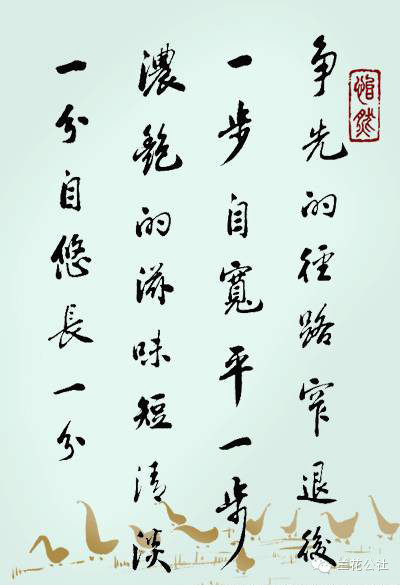 争先的径路窄退後
一步自寬平一步
濃艷的滋味短清淡
一分自悠長一分
兰花公社